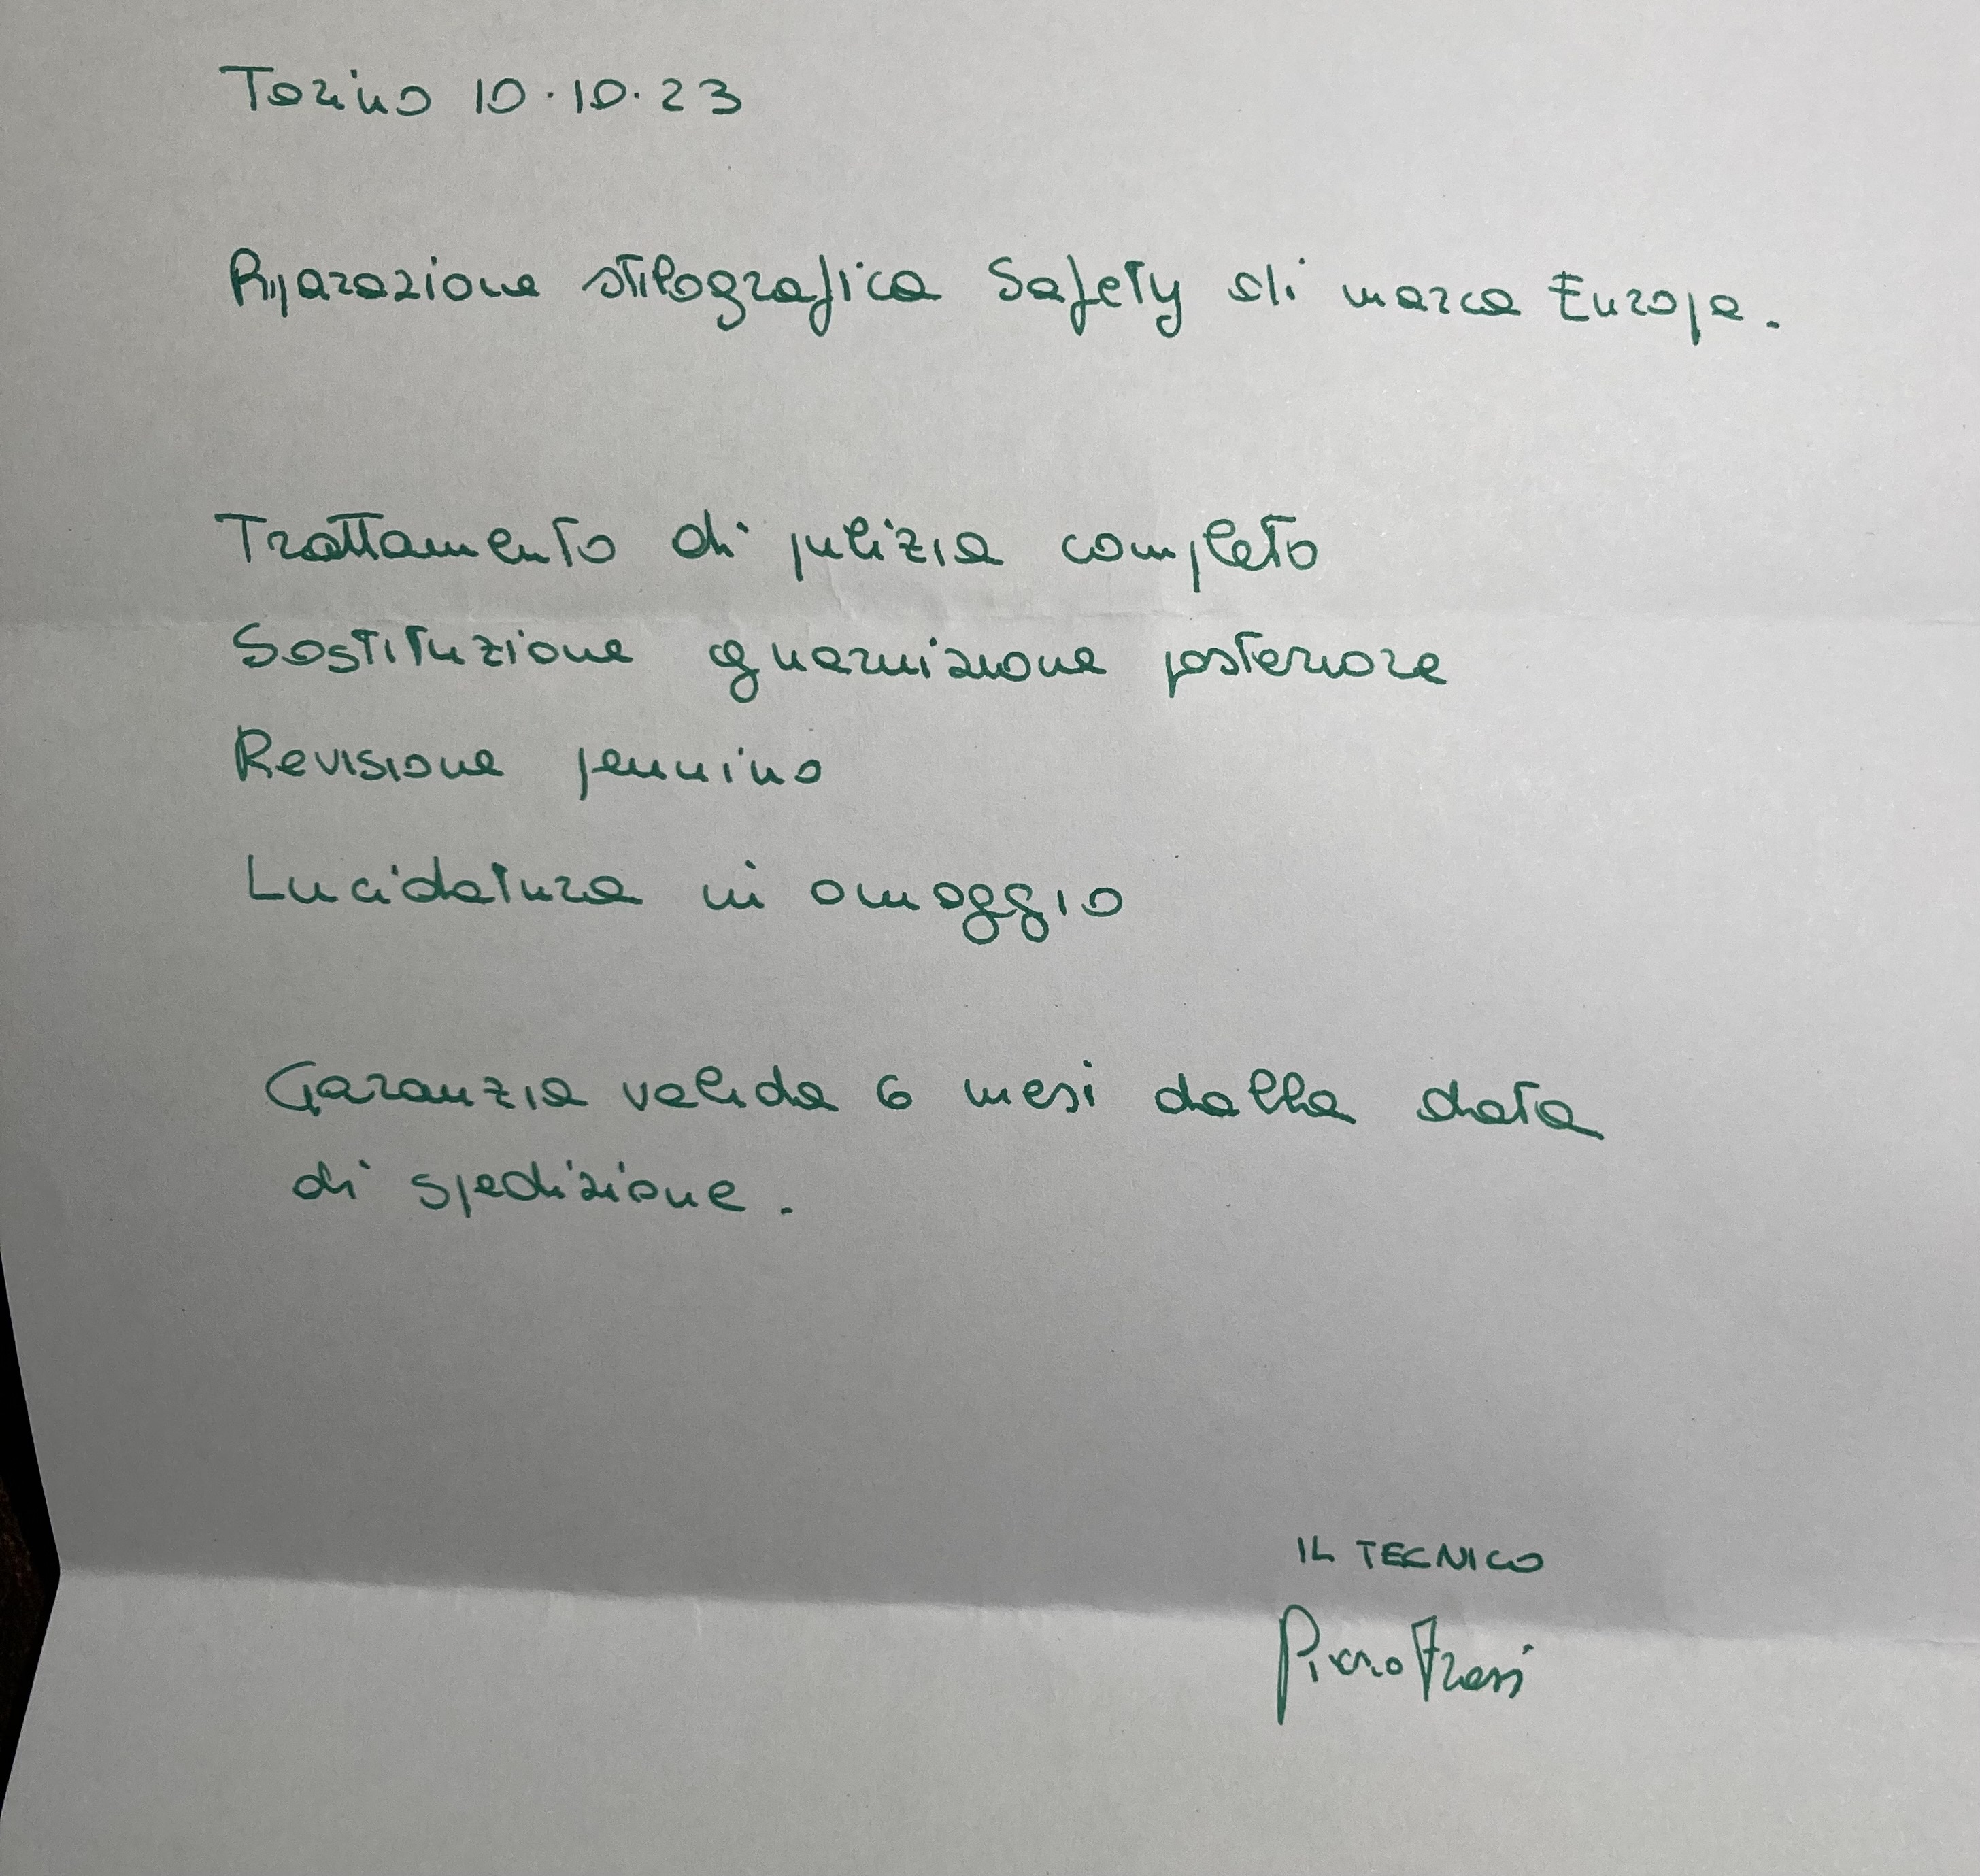 Torino 10.10.23
Riparazione stilografica Safety di marca Europa.
Trattamento di pulizia completo
Sostituzione guarnizione posteriore
Revisione pennino
Lucidatura in omaggio
Garanzia valida 6 mesi dalla data
di spedizione.
IL TECNICO